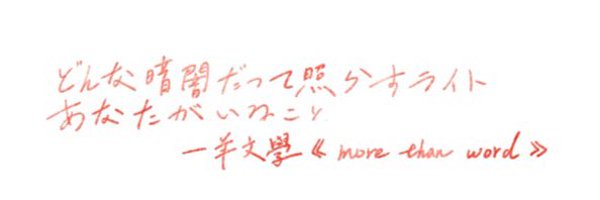 どんな暗闇だって照らすライト
あなたがいること
一羊文學《more than word》